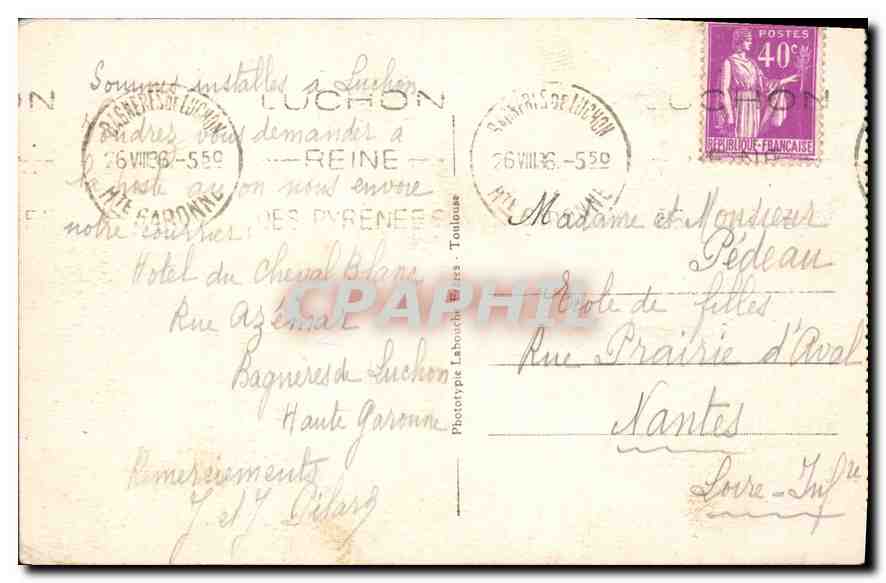 Sommes installés à Luchon
Voudrez vous demander à
la poste qu'on nous envoie
notre courrier.
Hotel du Cheval Blanc
Rue Azémar
Bagnères de Luchon
Haute Garonne
Remerciements
J et J
BAGNERES DE LUCHON
26 VIII 36 - 5 50
HTE GARONNE
LUCHON
REINE
DES PYRENEES
BAGNERES DE LUCHON
26 VIII 36 - 5 50
HTE GARONNE
Phototypie Labouche Frères - Toulouse
POSTES
40c
REPUBLIQUE-FRANCAISE
Madame et Monsieur
Pédeau
Ecole de filles
Rue Prairie d'Aval
Nantes
Loire-Infre
CPAPHIL